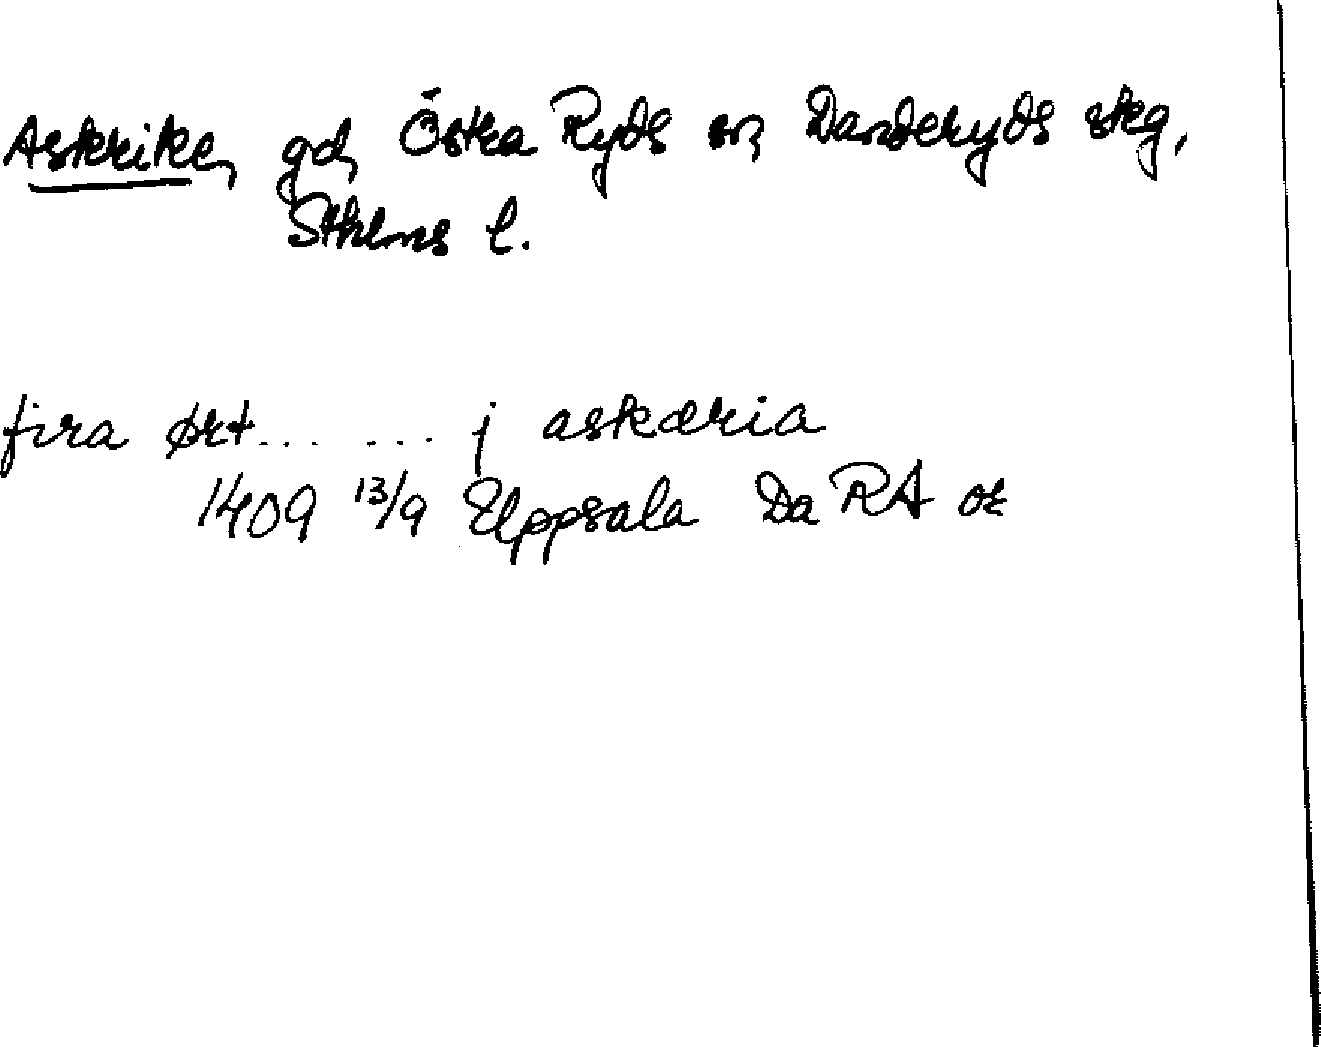 Askrike, gd, Östra Ryds sn, Danderyds skg,
Sthlms l.
fira ørt... ... j askæria
1409 13/9 Uppsala Da RA or